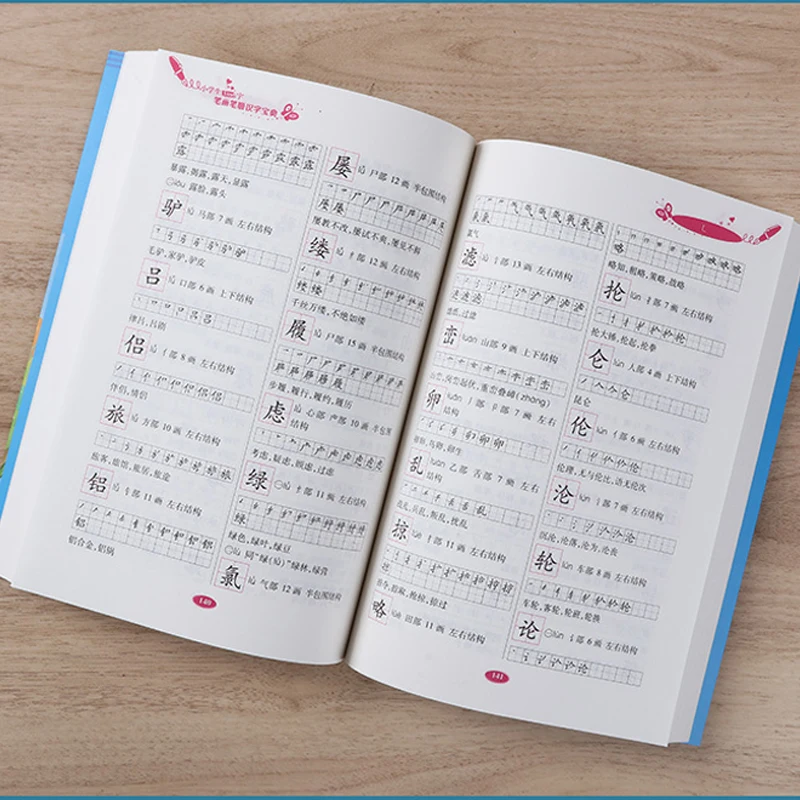 小学生
笔画笔顺识字宝典
露
暴露,揭露,露天,显露
lòu 露脸,露头
驴 lǘ 马部 7画 左右结构
毛驴,家驴,驴皮
吕 lǚ 口部 6画 上下结构
律吕,吕剧
侣 lǚ 亻部 8画 左右结构
伴侣,情侣
旅 lǚ 方部 10画 左右结构
旅客,旅馆,旅居,旅途
铝 lǚ 钅部 11画 左右结构
铝
铝合金,铝锅
屡 lǚ 尸部 12画 半包围结构
屡屡
屡教不改,屡试不爽,屡见不鲜
缕 lǚ 纟部 12画 左右结构
缕缕
千丝万缕,不绝如缕
履 lǚ 尸部 15画 半包围结构
步履,履行,履约,履历
虑 lǜ 心部 虍部 10画 半包围
结构
考虑,疑虑,顾虑,过虑
绿 lǜ 纟部 11画 左右结构
绿色,绿叶,绿豆
lù 同“绿(lǜ)”绿林,绿营
氯 lǜ 气部 12画 半包围结构
140
L
氯气
滤 lǜ 氵部 13画 左右结构
滤纸,过滤
峦 luán 山部 9画 上下结构
山峦,冈峦起伏,重峦叠嶂(zhàng)
卵 luǎn 丿部 卩部 7画 左右
结构
卵生
乱 luàn 乙部 舌部 7画 左右
结构
战乱,兵乱,叛乱,扰乱
掠 lüè 扌部 11画 左右结构
掠夺,抢掠,掠过
略 lüè 田部 11画 左右结构
略
略知,粗略,策略,战略
抡 lūn 扌部 7画 左右结构
抡大锤,抡起,抡拳
仑 lún 人部 4画 上下结构
昆仑
伦 lún 亻部 6画 左右结构
伦理,无与伦比,语无伦次
沦 lún 氵部 7画 左右结构
沉沦,沦落,沦为,沦丧
轮 lún 车部 8画 左右结构
车轮,客轮,轮班,轮换
论 lùn 讠部 6画 左右结构
141